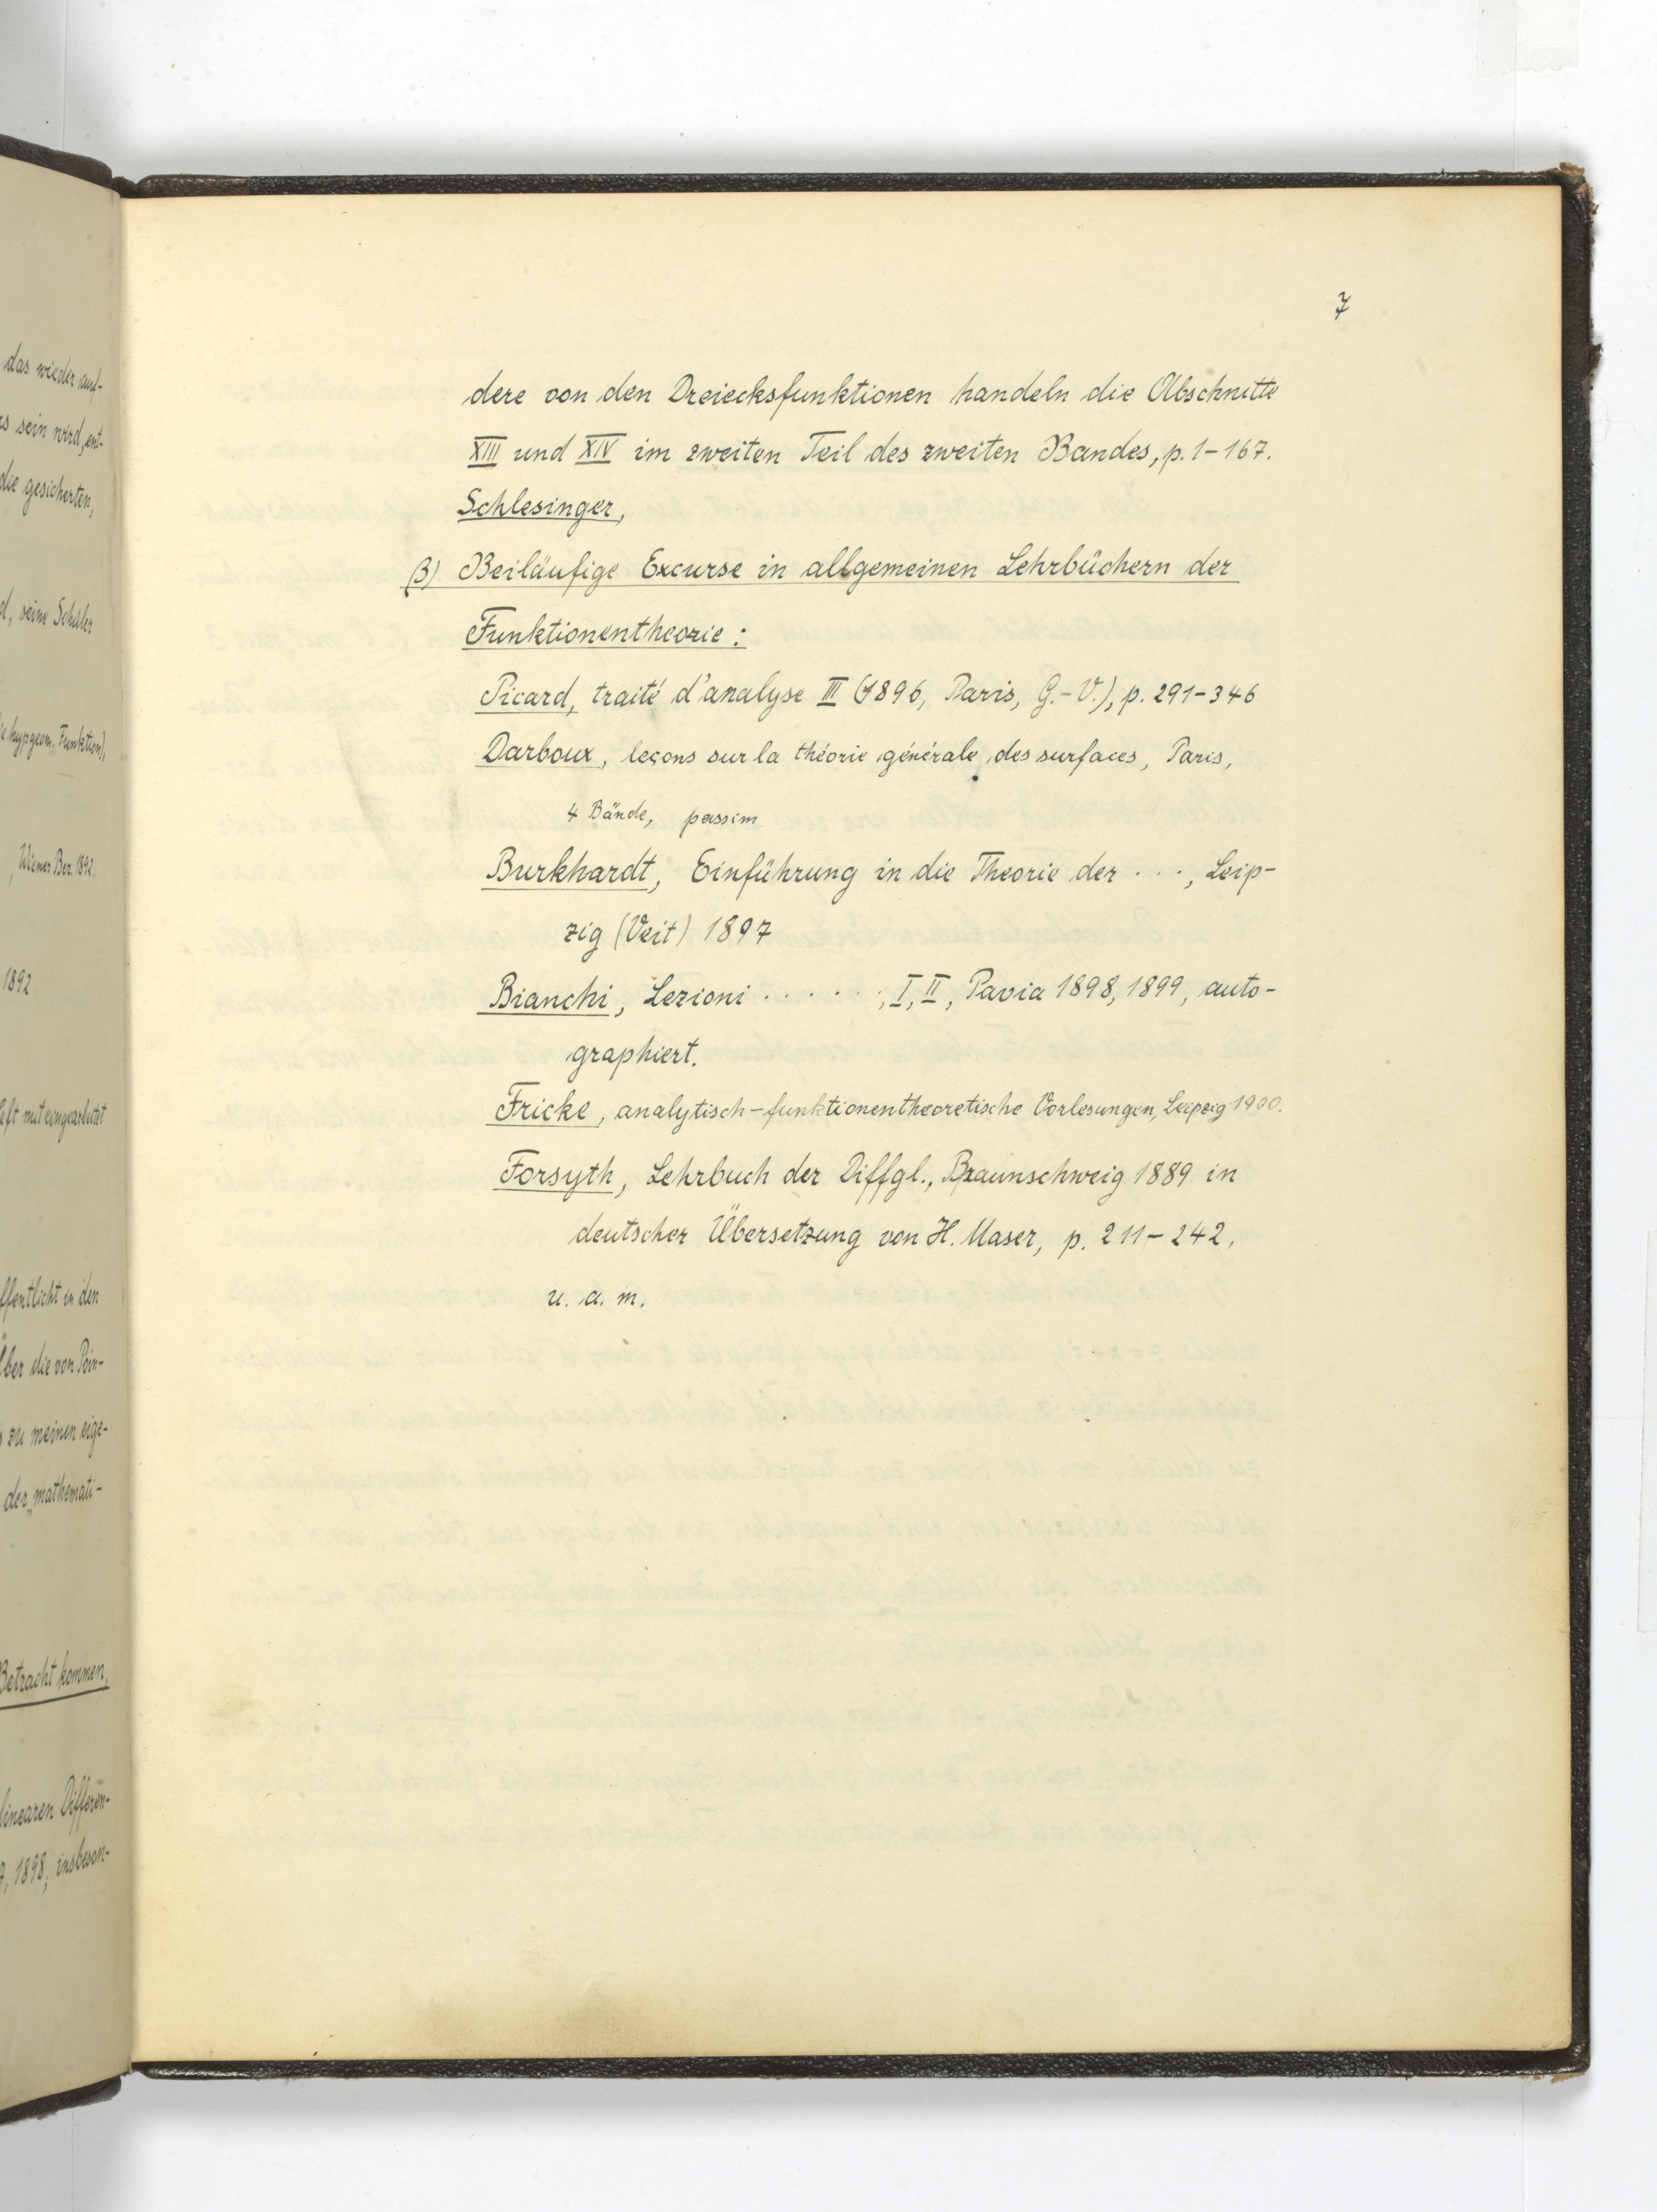 das wieder auf-
s sein wird, ent-
die gesicherten,
d, seine Schüler
hypgeom. Funktion),
, Wiener Ber. 1892.
1892
eft mit eingearbeitet
ffentlicht in den
ber die von Poin-
zu meinen eige-
der „mathemati-
Betracht kommen,
linearen Differen-
, 1898, insbeson-
7
dere von den Dreiecksfunktionen handeln die Abschnitte
XIII und XIV im zweiten Teil des zweiten Bandes, p. 1-167.
Schlesinger,
β) Beiläufige Excurse in allgemeinen Lehrbüchern der
Funktionentheorie:
Picard, traité d'analyse III (1896, Paris, G.-V.), p. 291-346
Darboux, leçons sur la théorie générale des surfaces, Paris,
4 Bände, passim
Burkhardt, Einführung in die Theorie der . . ., Leip-
zig (Veit) 1897
Bianchi, Lezioni . . . . . ., I, II, Pavia 1898, 1899, auto-
graphiert.
Fricke, analytisch-funktionentheoretische Vorlesungen, Leipzig 1900.
Forsyth, Lehrbuch der Diffgl., Braunschweig 1889 in
deutscher Übersetzung von H. Maser, p. 211-242,
u. a. m.